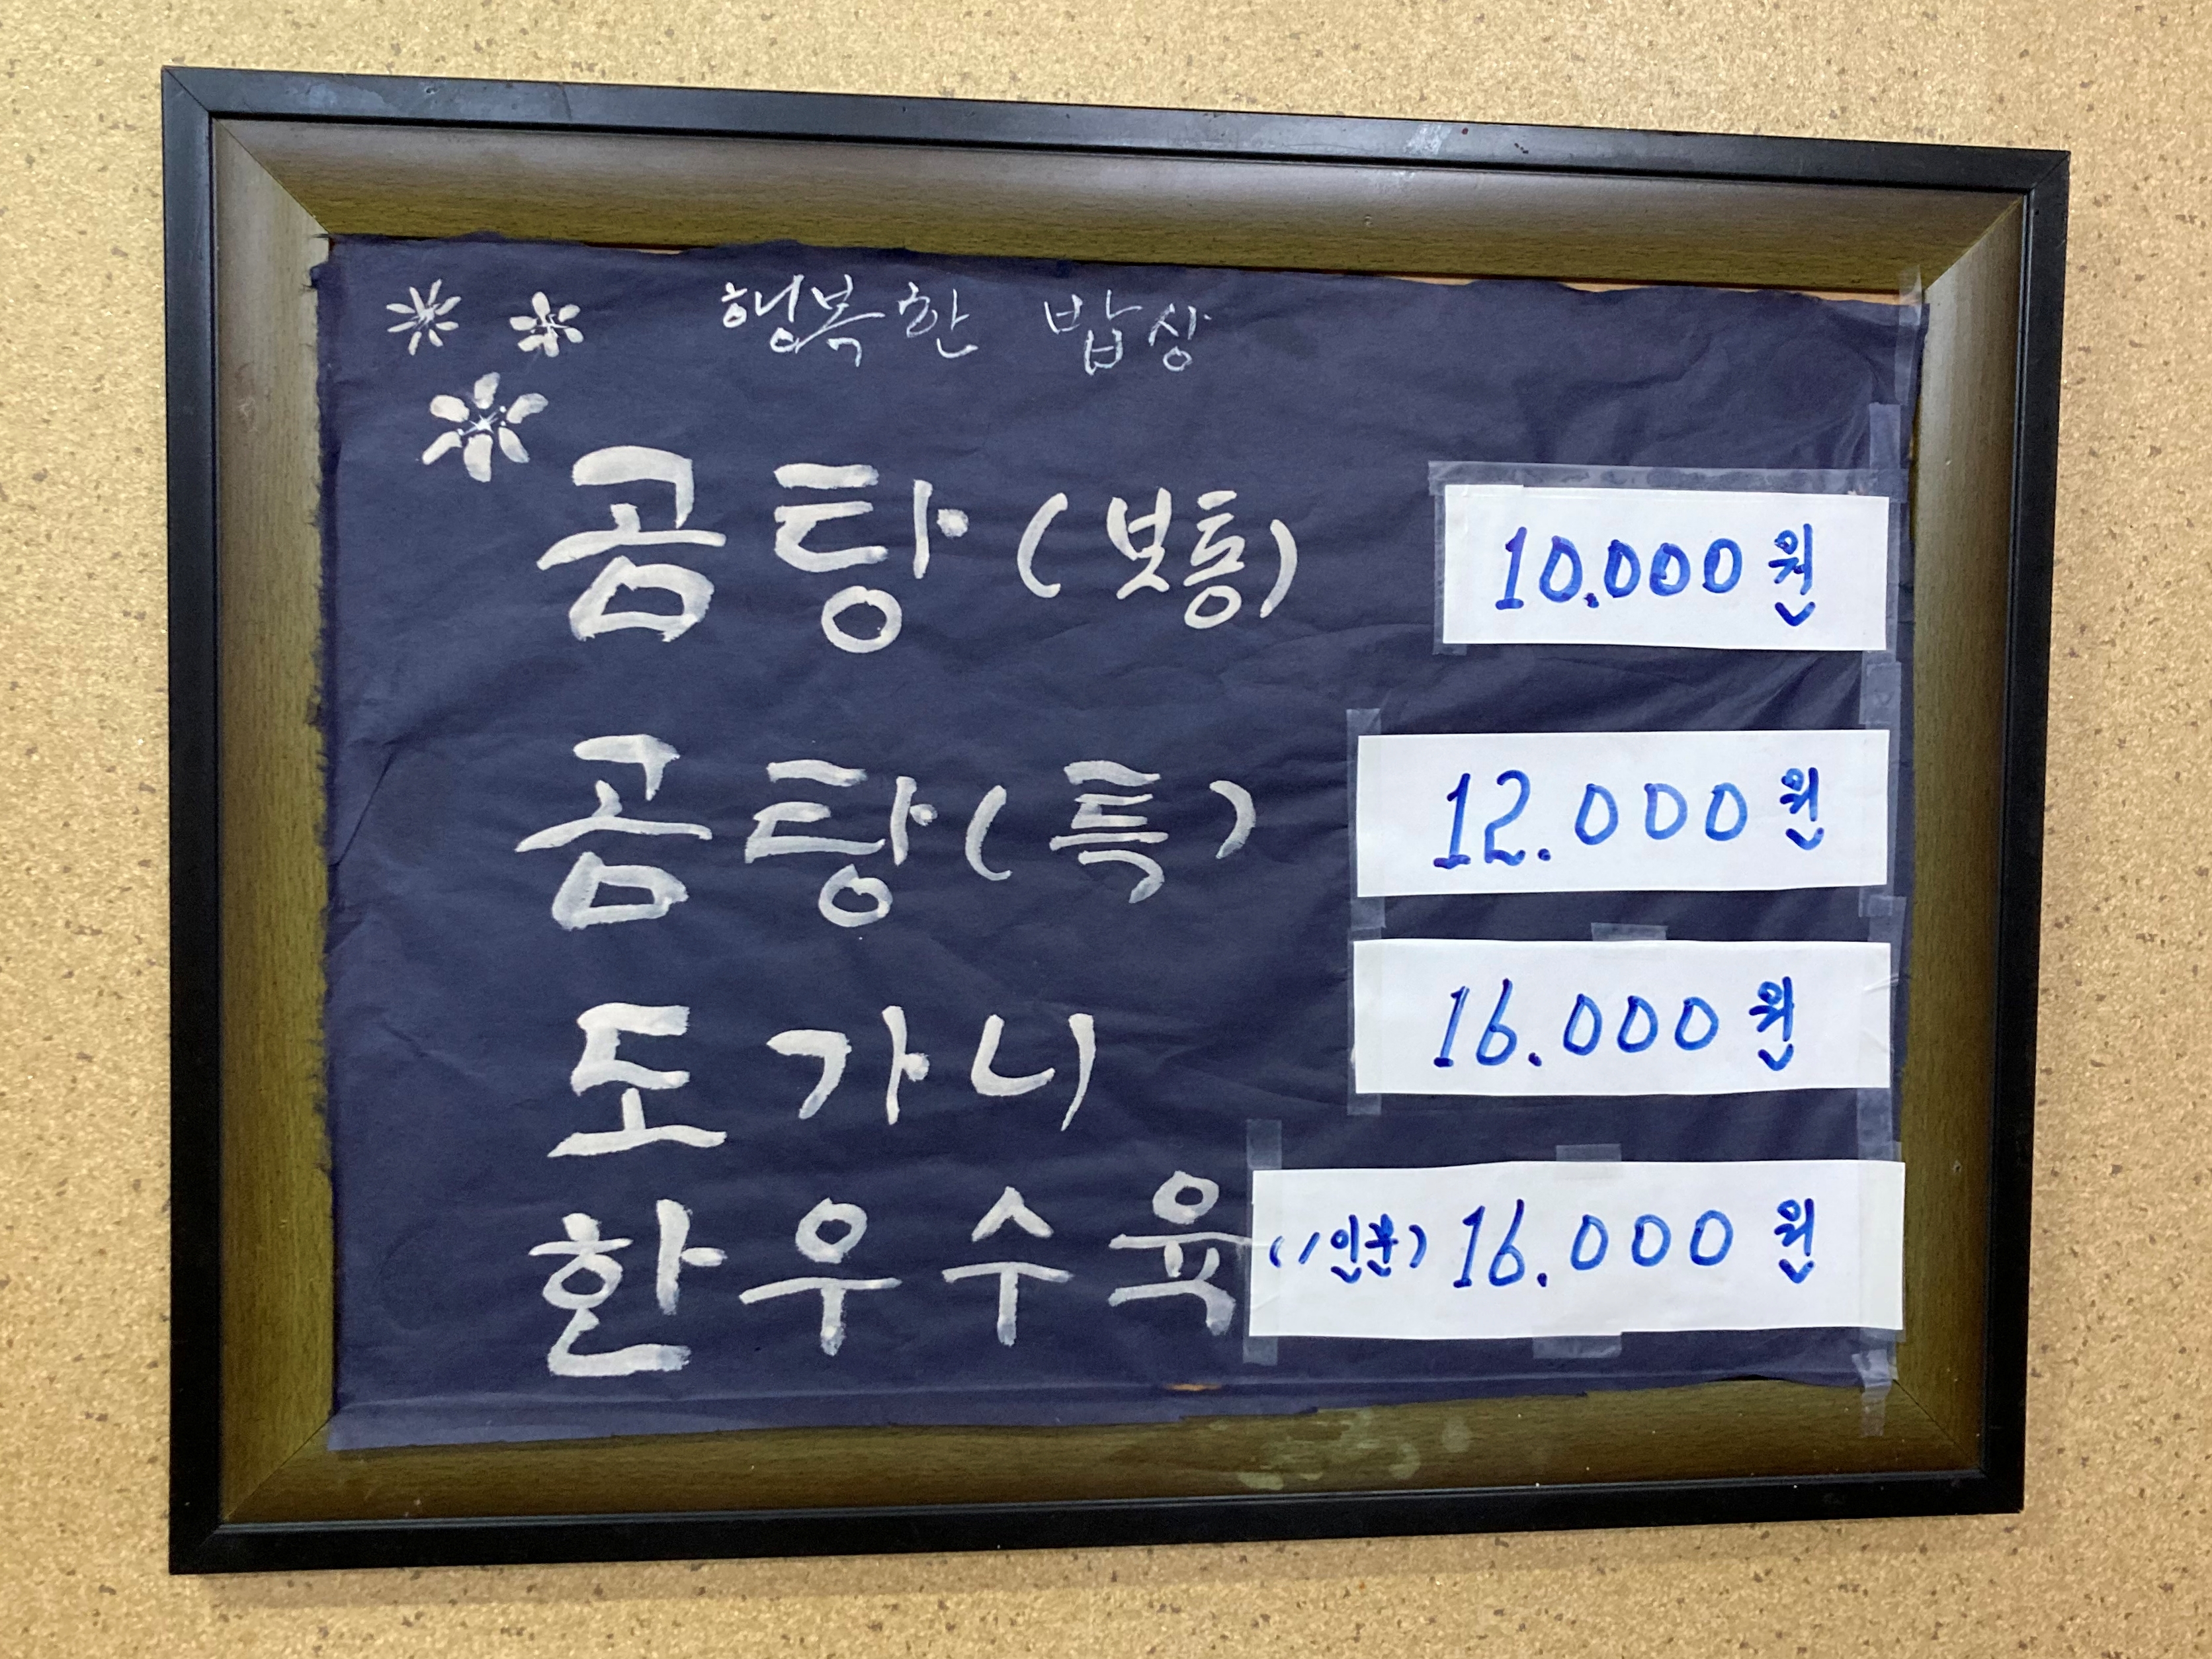 행복한 밥상
곰탕(보통) 10.000원
곰탕(특) 12.000원
도가니 16.000원
한우수육 (1인분) 16.000원